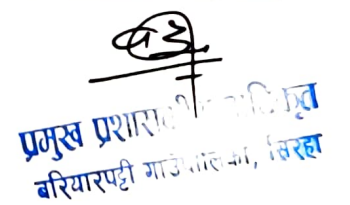 प्रमुख प्रशासकीय अधिकृत
बरियारपट्टी गाउँपालिका, सिरहा